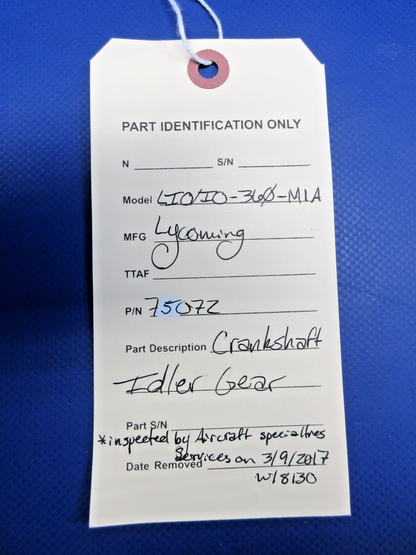 PART IDENTIFICATION ONLY
N S/N
Model LIO/IO-360-M1A
MFG Lycoming
TTAF
P/N 75072
Part Description Crankshaft
Idler Gear
Part S/N
*inspected by Aircraft specialties
Services on 3/9/2017
Date Removed
w/8130